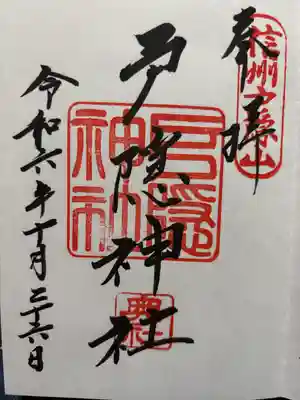 信州戸隠山
奉拝
戸隠神社
戸隠神社
令和六年十月二十六日